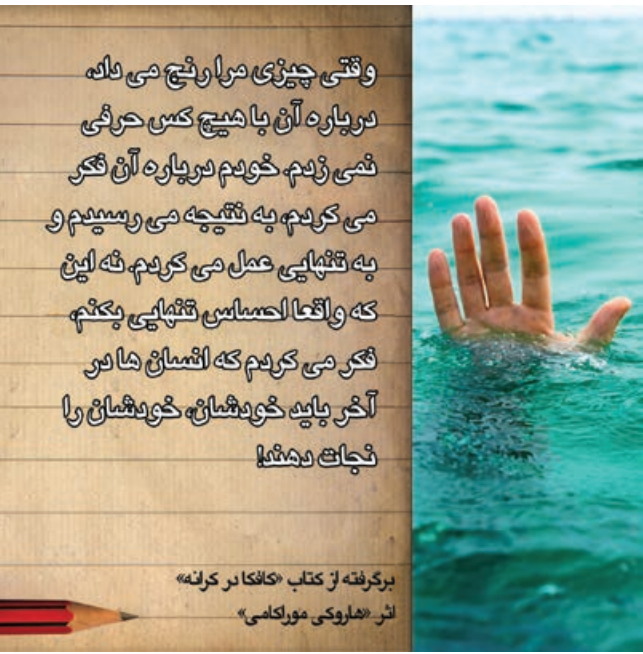 وقتی چیزی مرا رنج می داد،
درباره آن با هیچ کس حرفی
نمی زدم. خودم درباره آن فکر
می کردم، به نتیجه می رسیدم و
به تنهایی عمل می کردم. نه این
که واقعا احساس تنهایی بکنم،
فکر می کردم که انسان ها در
آخر باید خودشان، خودشان را
نجات دهند!
برگرفته از کتاب «کافکا در کرانه»
اثر «هاروکی موراکامی»